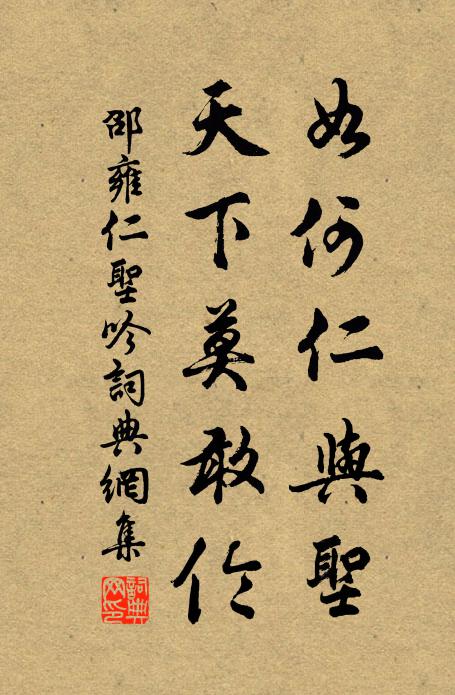 如何仁與聖
天下莫敢倫
邵雍仁聖吟詞典網集
詞典网印